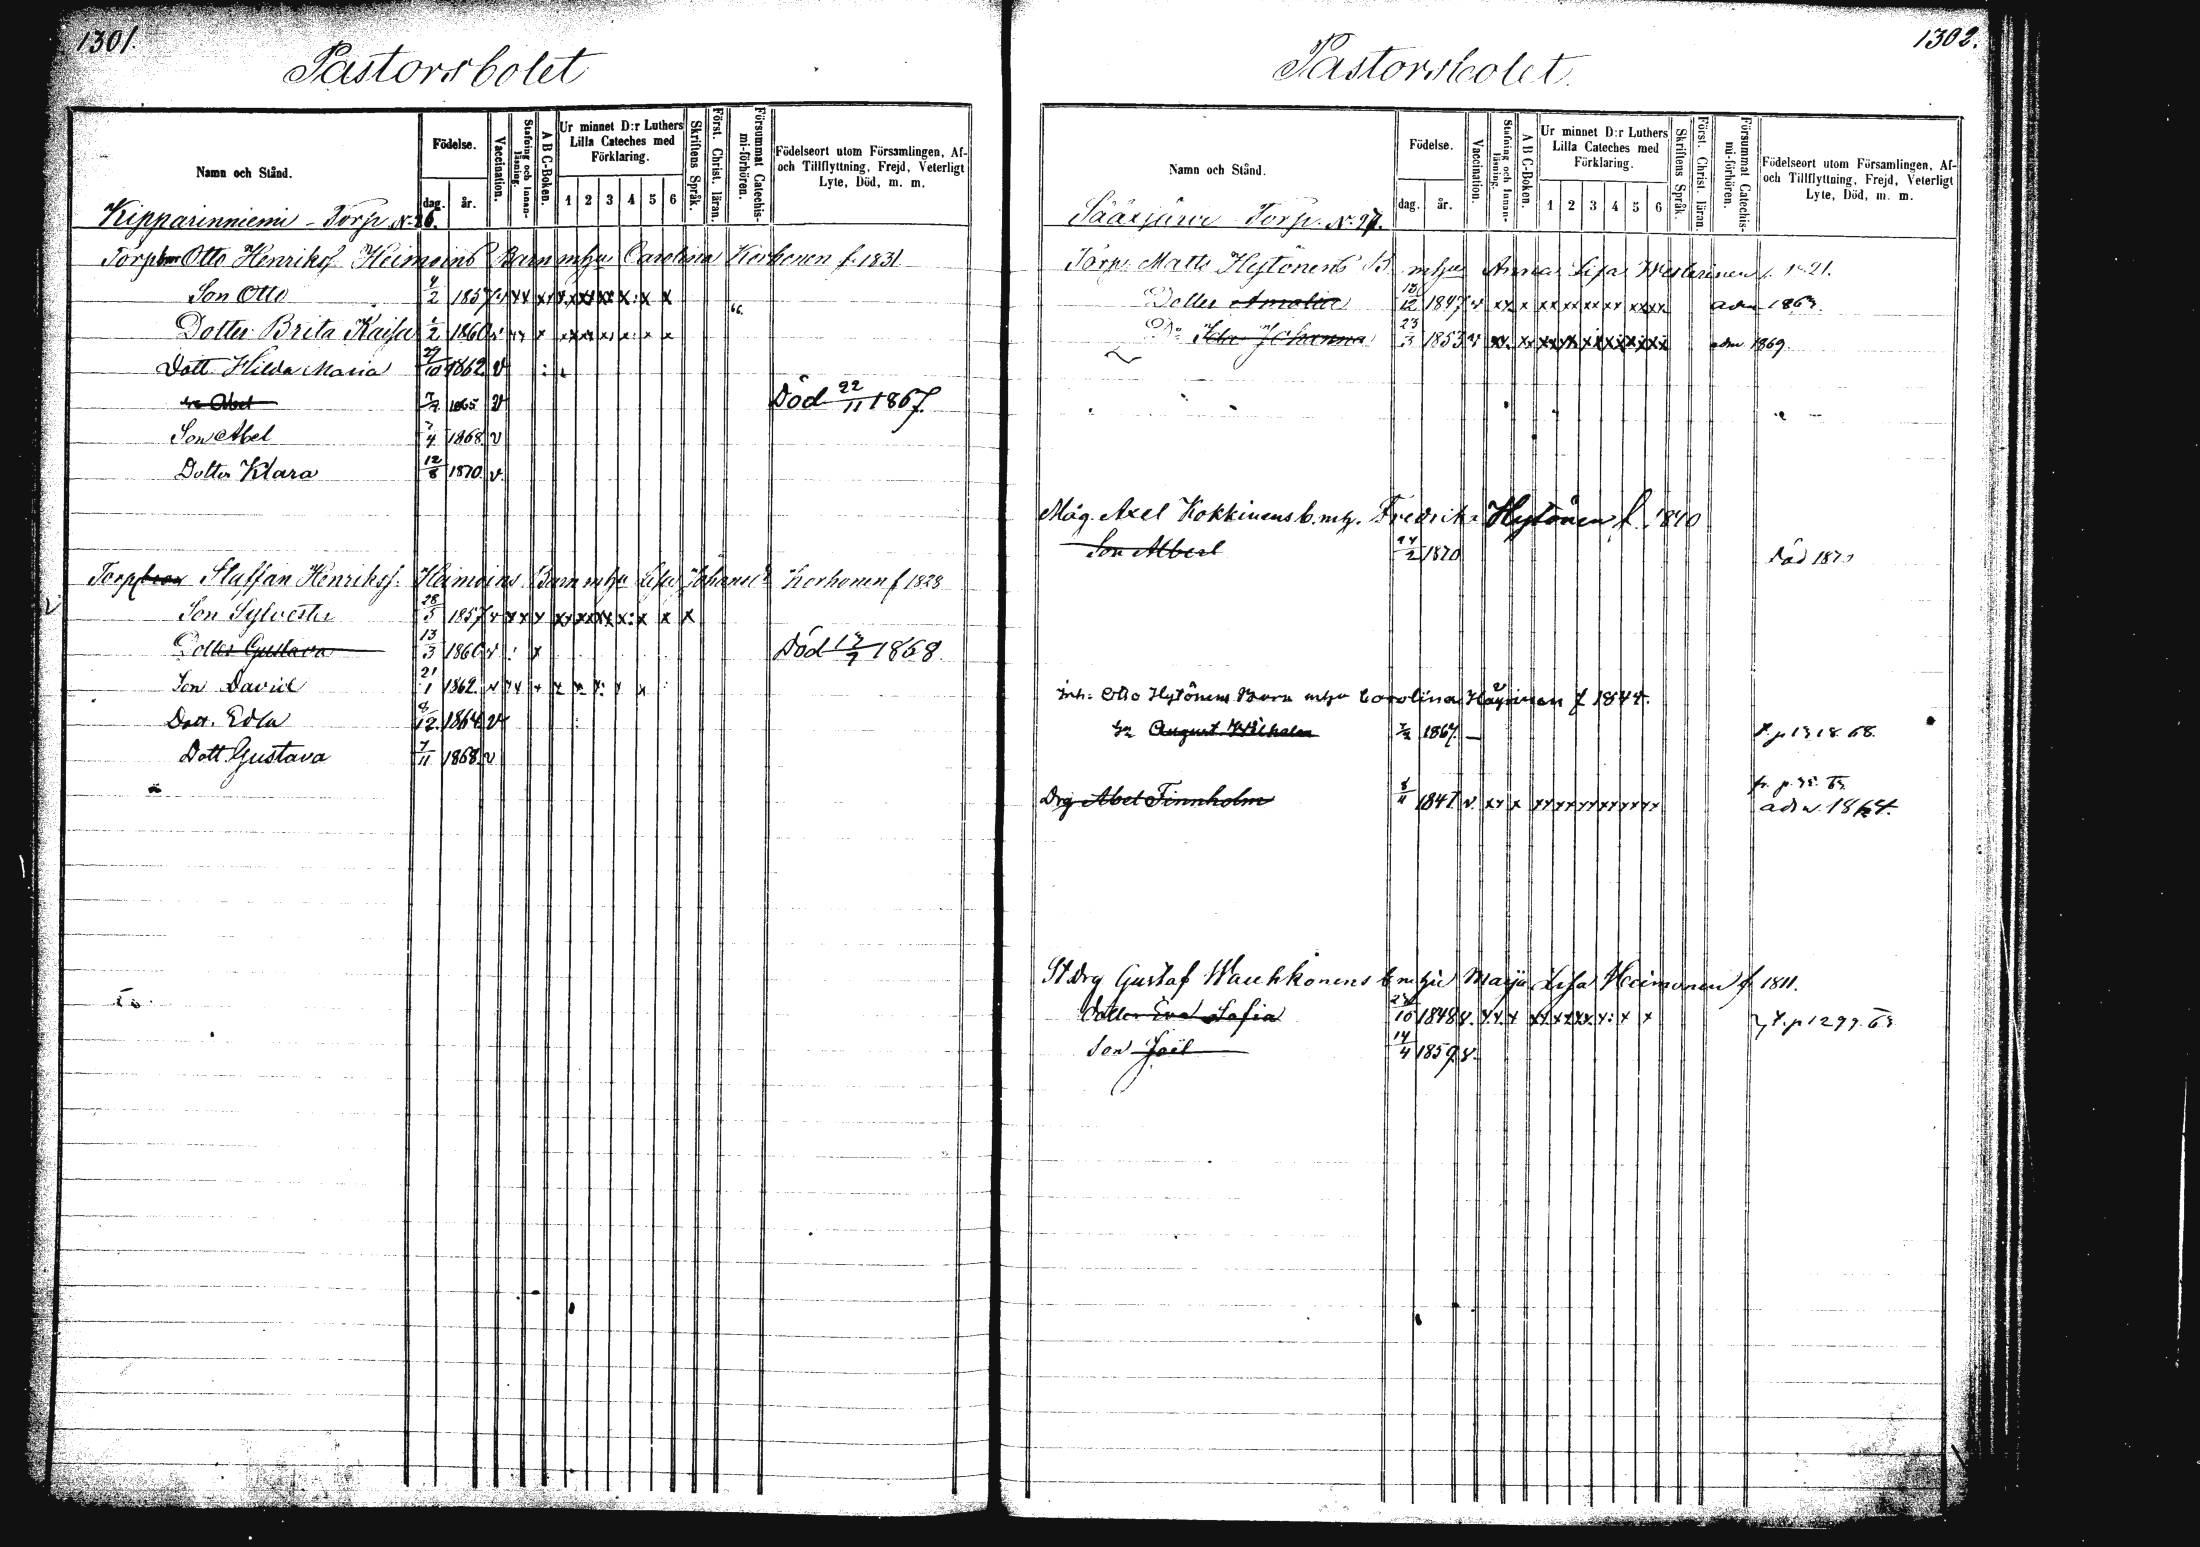 1301.
Pastorsbolet
Namn och Stånd.
Födelse.
dag. år.
Vaccination.
Stafning och Innanläsning.
A B C-Boken.
Ur minnet D:r Luthers Lilla Cateches med Förklaring.
1 2 3 4 5 6
Skriftens Språk.
Först. Christ. läran.
Försummat Catechismi-förhören.
Födelseort utom Församlingen, Af- och Tillflyttning, Frejd, Veterligt Lyte, Död, m. m.
Kipparinniemi - Torp N. 26.
Otto Henriksf Heimoins Barn m hu Carolina Korhonen f. 1831
Son Otto 4/2 1857
66.
Dotter Brita Kaisa 1/2 1860
Dott. Hilda Maria 27/10 1862 v
Abel 1865 v Död 22/11 1867.
Son Abel 7/4 1868 v
Dotter Klara 12/8 1870. v.
Staffan Henriksf. Heimoins Barn m hu Lisa Johansd. Korhonen f 1823
Son Sylvester 28/5 1857 v
Dotter Gustava 13/3 1860 v Död 1868
Son David 21/1 1862 v
Dott. Edla 8/12 1864 v
Dott. Gustava 7/11 1868 v
1302.
Pastorsbolet.
Namn och Stånd.
Födelse.
dag. år.
Vaccination.
Stafning och Innanläsning.
A B C-Boken.
Ur minnet D:r Luthers Lilla Cateches med Förklaring.
1 2 3 4 5 6
Skriftens Språk.
Först. Christ. läran.
Försummat Catechismi-förhören.
Födelseort utom Församlingen, Af- och Tillflyttning, Frejd, Veterligt Lyte, Död, m. m.
Sääxjärvi Torp. N. 27.
Torp. Matts Hytönens B m hu Anna Lisa Westerinen f. 1821.
Dotter Amalia 1847 v adm 1863.
Do Johanna 23/3 1853 v adm 1869.
Måg. Axel Kokkinens b. m h. Fredrika Hytönen f. 1840
Son Albert 1870 Död
Inh. Otto Hytönens Barn m hu Carolina Häyrinen f 1844.
Sn August Wilhelm 1867. —
Drg Abel Finnholm 8/11 1847. v. adm. 1864.
St Drg Gustaf Wauhkonens b m hu Maija Lisa Heimonen f 1811.
Dotter Eva Sofia 1848 v.
Son Joël 14/4 1859 v.